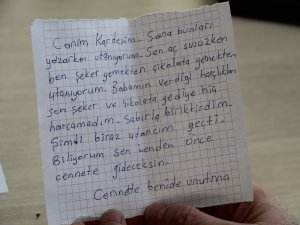 Canım Kardeşim. Sana bunları
yazarken utanıyorum. Sen aç susuzken
ben şeker yemekten çikolata yemekten
utanıyorum. Babamın verdiği harçlıkları
şeker ve çikolata, gediye hiç
harcamadım. Sabırla biriktirdim.
Şimdi biraz utancım geçti.
Biliyorum sen benden önce
cennete gideceksin.
Cennette benide unutma